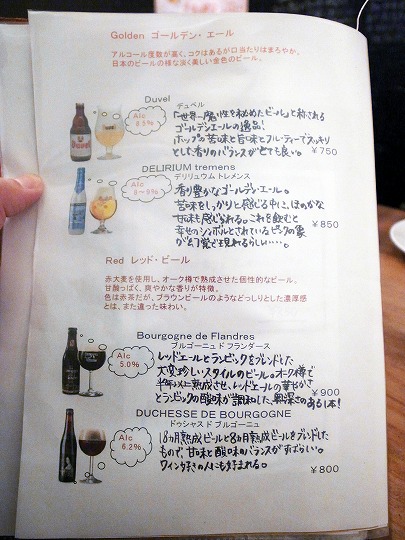 Golden ゴールデン・エール
アルコール度数が高く、コクはあるが口当たりはまろやか。
日本のビールの様な淡く美しい金色のビール。
Duvel
デュベル
Alc
8.5%
「世界一魔性を秘めたビール」と称される
ゴールデンエールの逸品!
ホップの苦味と旨味とフルーティーでスッキリ
とした香りのバランスがとても良い。
¥750
DELIRIUM tremens
デリリュウム トレメンス
Alc
8~9%
香り豊かなゴールデン・エール。
苦味をしっかりと感じる中に、ほのかな
甘味も感じられる。これを飲むと
幸せのシンボルとされているピンクの象
が幻覚で現れるらしい‥‥。
¥850
Red レッド・ビール
赤大麦を使用し、オーク樽で熟成させた個性的なビール。
甘酸っぱく、爽やかな香りが特徴。
色は赤茶だが、ブラウンビールのようなどっしりとした濃厚感
とは、また違った味わい。
Bourgogne de Flandres
ブルゴーニュ ド フランダース
Alc
5.0%
レッドエールとランビックをブレンドした
大変珍しいスタイルのビール。オーク樽で
半年以上熟成させ、レッドエールの華やかさ
とランビックの酸味が調和した、奥深さのある1本!
¥900
DUCHESSE DE BOURGOGNE
ドゥシャス ド ブルゴーニュ
Alc
6.2%
18ヵ月熟成ビールと8ヵ月熟成ビールをブレンドした
もので、甘味と酸味のバランスがすばらしい。
ワイン好きの人にも好まれる。
¥800